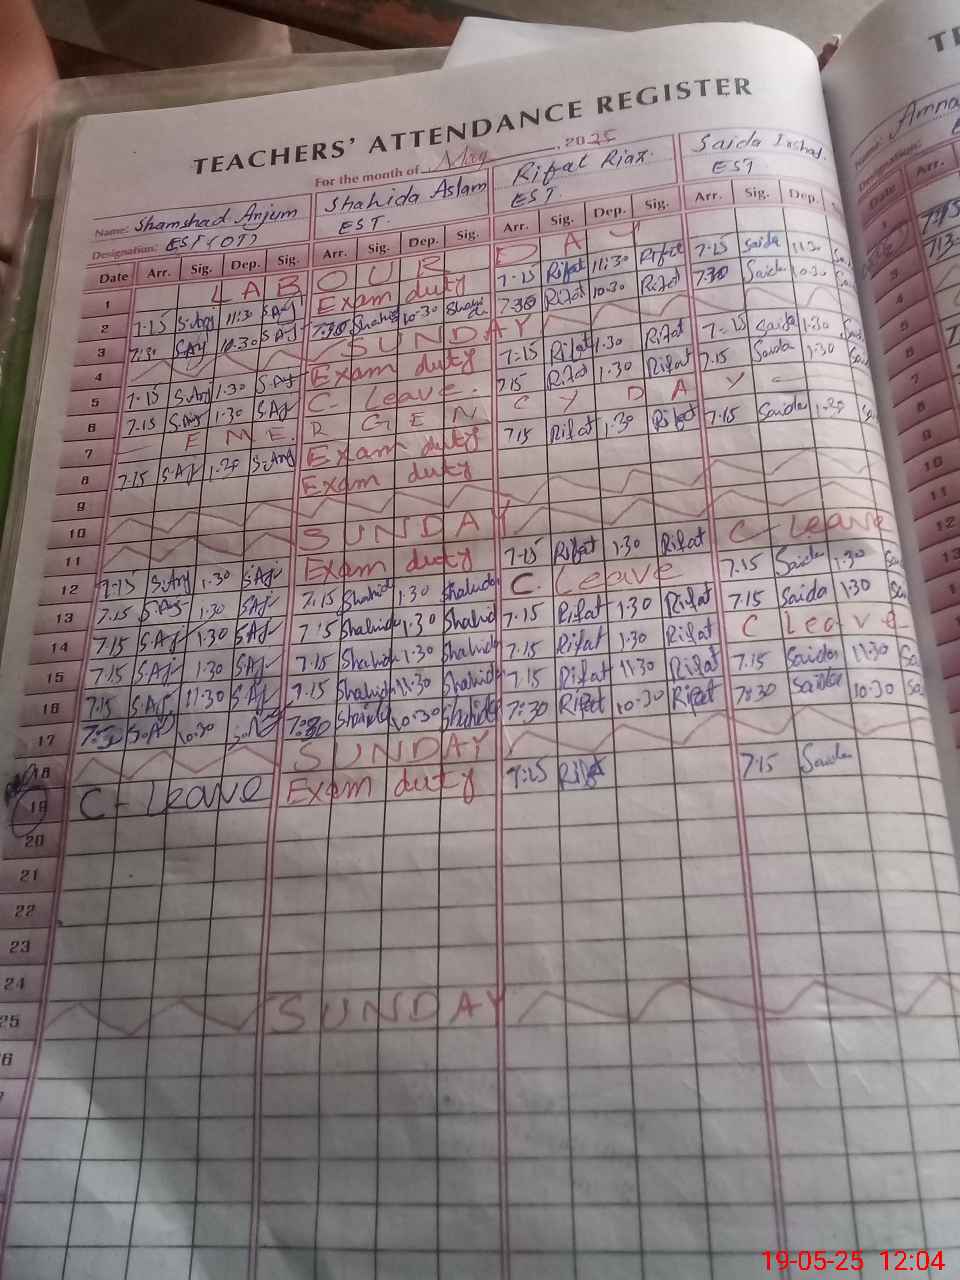 TEACHERS' ATTENDANCE REGISTER
For the month of May, 2025
Name: Shamshad Anjum Shahida Aslam Rifat Riaz Saida Irshad
Designation: EST (OT) EST. EST. EST
Date Arr. Sig. Dep. Sig. Arr. Sig. Dep. Sig. Arr. Sig. Dep. Sig. Arr. Sig. Dep.
1 LABOUR DAY
2 7-15 S.Anj 11:30 S.Anj Exam duty 7-15 Rifat 11:30 Rifat 7-15 Saida 11:30
3 7:30 S.Aj 10.30 S.Aj 7:30 Shahida 10-30 Shahida 7:30 Rifat 10.30 Rifat 7:30 Saida 10:30
4 SUNDAY
5 7-15 S.Anj 1.30 S.Aj Exam duty 7-15 Rifat 1.30 Rifat 7-15 Saida 1.30
6 7.15 S.Anj 1.30 S.Aj C- Leave. 7.15 Rifat 1.30 Rifat 7.15 Saida 1.30
7 EMERGENCY DAY
8 7.15 S.Aj 1.30 S.Anj Exam duty 7.15 Rifat 1.30 Rifat 7.15 Saida 1.30
9 Exam duty
10
11 SUNDAY
12 7-15 S.Anj 1.30 S.Aj Exam duty 7-15 Rifat 1.30 Rifat C- Leave
13 7.15 S.Aj 1.30 S.Aj 7.15 Shahid 1.30 Shahida C. Leave 7.15 Saida 1.30
14 7.15 S.Aj 1.30 S.Aj 7:15 Shahida 1.30 Shahid 7.15 Rifat 1.30 Rifat 7.15 Saida 1.30
15 7.15 S.Aj 1.30 S.Aj 7.15 Shahida 1.30 Shahida 7.15 Rifat 1.30 Rifat C Leave
16 7.15 S.Aj 11.30 S.Aj 7.15 Shahida 11.30 Shahida 7.15 Rifat 11.30 Rifat 7.15 Saida 11.30
17 10.30 7:30 Shahida 10.30 Shahida 7:30 Rifat 10.30 Rifat 7:30 Saida 10.30
18 SUNDAY
19 C- Leave Exam duty 7:15 Rifat 7.15 Saida
20
21
22
23
24
25 SUNDAY
Name: Amna
Designation:
Date Arr.
19-05-25 12:04